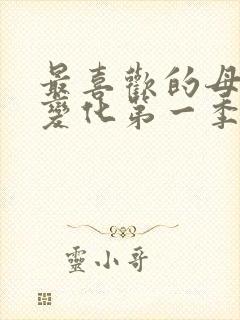 最喜歡的母
變化第一季
靈小哥